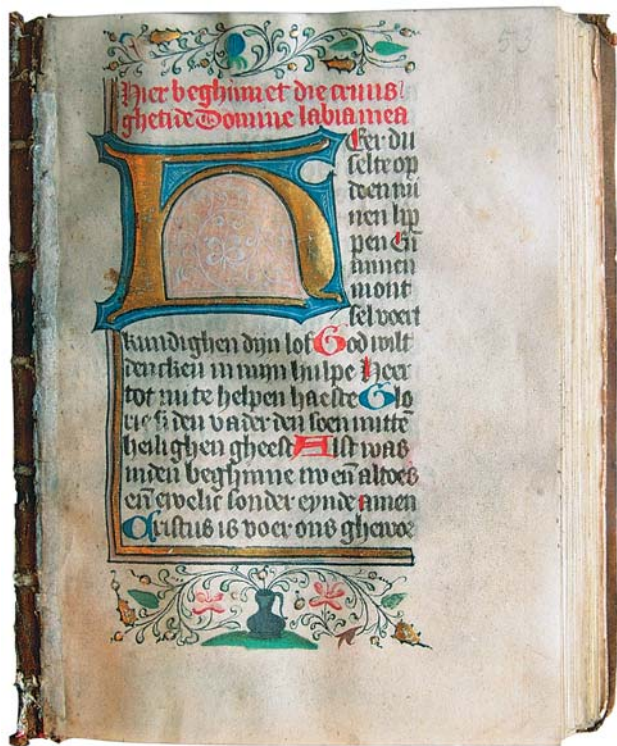 53
Hier beghinnet die cruus
ghetide Domine labia mea
HEer du
selte op
doen mi
nen lip
pen En
minen
mont
sel voert
kundighen dijn lof God wilt
dencken in mijn hulpe Heer
tot mi te helpen haeste Glo
rie si den vader den soen mitten
heilighen gheest Alst was
inden beghinne nv en altoes
en ewelic sonder eynde amen
Cristus is voer ons ghewor